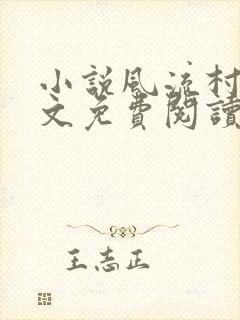 小説風流村
文免費閱讀
王志正